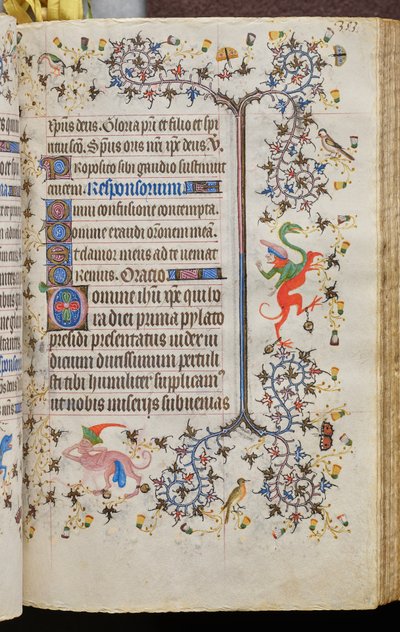 333.
xp̄us deus. Gloria pr̄i et filio et spi
ritui sc̄o. Sp̄us oris nr̄i xp̄e deus. V.
Proposito sibi gaudio sustinuit
crucem. Responsorium.
Omni confusione contempta.
Domine exaudi or̄onem meā.
Et clamor meus ad te veniat
Oremus. Oratio.
Domine ih̄u xp̄e qui ho
ra diei prima pylato
presidi presentatus iuder in
diatum durissimum pertuli
sti tibi humiliter supplicam̄
ut nobis miserijs subuenias